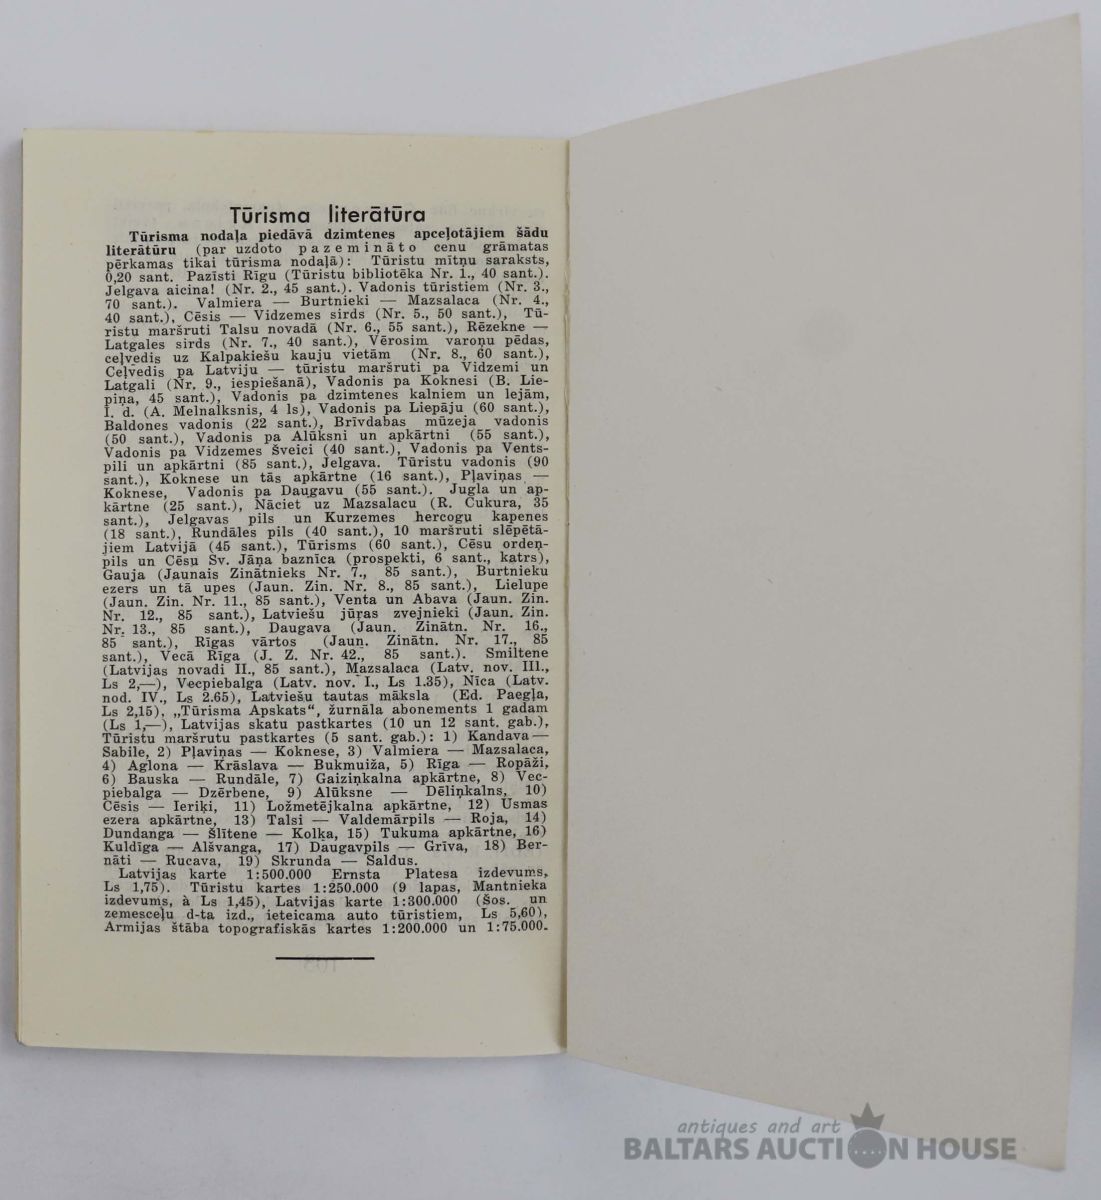 Tūrisma literātūra
Tūrisma nodaļa piedāvā dzimtenes apceļotājiem šādu
literātūru (par uzdoto pazemināto cenu grāmatas
pērkamas tikai tūrisma nodaļā): Tūristu mītņu saraksts,
0,20 sant. Pazīsti Rīgu (Tūristu bibliotēka Nr. 1., 40 sant.).
Jelgava aicina! (Nr. 2., 45 sant.). Vadonis tūristiem (Nr. 3.,
70 sant.). Valmiera — Burtnieki — Mazsalaca (Nr. 4.,
40 sant.), Cēsis — Vidzemes sirds (Nr. 5., 50 sant.), Tū-
ristu maršruti Talsu novadā (Nr. 6., 55 sant.), Rēzekne —
Latgales sirds (Nr. 7., 40 sant.), Vērosim varoņu pēdas,
ceļvedis uz Kalpakiešu kauju vietām (Nr. 8., 60 sant.),
Ceļvedis pa Latviju — tūristu maršruti pa Vidzemi un
Latgali (Nr. 9., iespiešanā), Vadonis pa Koknesi (B. Lie-
piņa, 45 sant.), Vadonis pa dzimtenes kalniem un lejām,
I. d. (A. Melnalksnis, 4 ls), Vadonis pa Liepāju (60 sant.),
Baldones vadonis (22 sant.), Brīvdabas mūzeja vadonis
(50 sant.), Vadonis pa Alūksni un apkārtni (55 sant.),
Vadonis pa Vidzemes Šveici (40 sant.), Vadonis pa Vents-
pili un apkārtni (85 sant.), Jelgava. Tūristu vadonis (90
sant.), Koknese un tās apkārtne (16 sant.), Pļaviņas —
Koknese, Vadonis pa Daugavu (55 sant.). Jugla un ap-
kārtne (25 sant.), Nāciet uz Mazsalacu (R. Cukura, 35
sant.), Jelgavas pils un Kurzemes hercogu kapenes
(18 sant.), Rundāles pils (40 sant.), 10 maršruti slēpētā-
jiem Latvijā (45 sant.), Tūrisms (60 sant.), Cēsu ordeņ-
pils un Cēsu Sv. Jāņa baznīca (prospekti, 6 sant., katrs),
Gauja (Jaunais Zinātnieks Nr. 7., 85 sant.), Burtnieku
ezers un tā upes (Jaun. Zin. Nr. 8., 85 sant.), Lielupe
(Jaun. Zin. Nr. 11., 85 sant.), Venta un Abava (Jaun. Zin.
Nr. 12., 85 sant.), Latviešu jūras zvejnieki (Jaun. Zin.
Nr. 13., 85 sant.), Daugava (Jaun. Zinātn. Nr. 16.,
85 sant.), Rīgas vārtos (Jaun. Zinātn. Nr. 17., 85
sant.), Vecā Rīga (J. Z. Nr. 42., 85 sant.). Smiltene
(Latvijas novadi II., 85 sant.), Mazsalaca (Latv. nov. III.,
Ls 2,—), Vecpiebalga (Latv. nov. I., Ls 1.35), Nīca (Latv.
nod. IV., Ls 2.65), Latviešu tautas māksla (Ed. Paegļa,
Ls 2,15), „Tūrisma Apskats“, žurnāla abonements 1 gadam
(Ls 1,—), Latvijas skatu pastkartes (10 un 12 sant. gab.),
Tūristu maršrutu pastkartes (5 sant. gab.): 1) Kandava —
Sabile, 2) Pļaviņas — Koknese, 3) Valmiera — Mazsalaca,
4) Aglona — Krāslava — Bukmuiža, 5) Rīga — Ropāži,
6) Bauska — Rundāle, 7) Gaiziņkalna apkārtne, 8) Vec-
piebalga — Dzērbene, 9) Alūksne — Dēliņkalns, 10)
Cēsis — Ieriķi, 11) Ložmetējkalna apkārtne, 12) Usmas
ezera apkārtne, 13) Talsi — Valdemārpils — Roja, 14)
Dundanga — Šlītene — Kolka, 15) Tukuma apkārtne, 16)
Kuldīga — Alšvanga, 17) Daugavpils — Grīva, 18) Ber-
nāti — Rucava, 19) Skrunda — Saldus.
Latvijas karte 1:500.000 Ernsta Platesa izdevums,
Ls 1,75). Tūristu kartes 1:250.000 (9 lapas, Mantnieka
izdevums, à Ls 1,45), Latvijas karte 1:300.000 (Šos. un
zemesceļu d-ta izd., ieteicama auto tūristiem, Ls 5,60),
Armijas štāba topografiskās kartes 1:200.000 un 1:75.000.
antiques and art
BALTARS AUCTION HOUSE